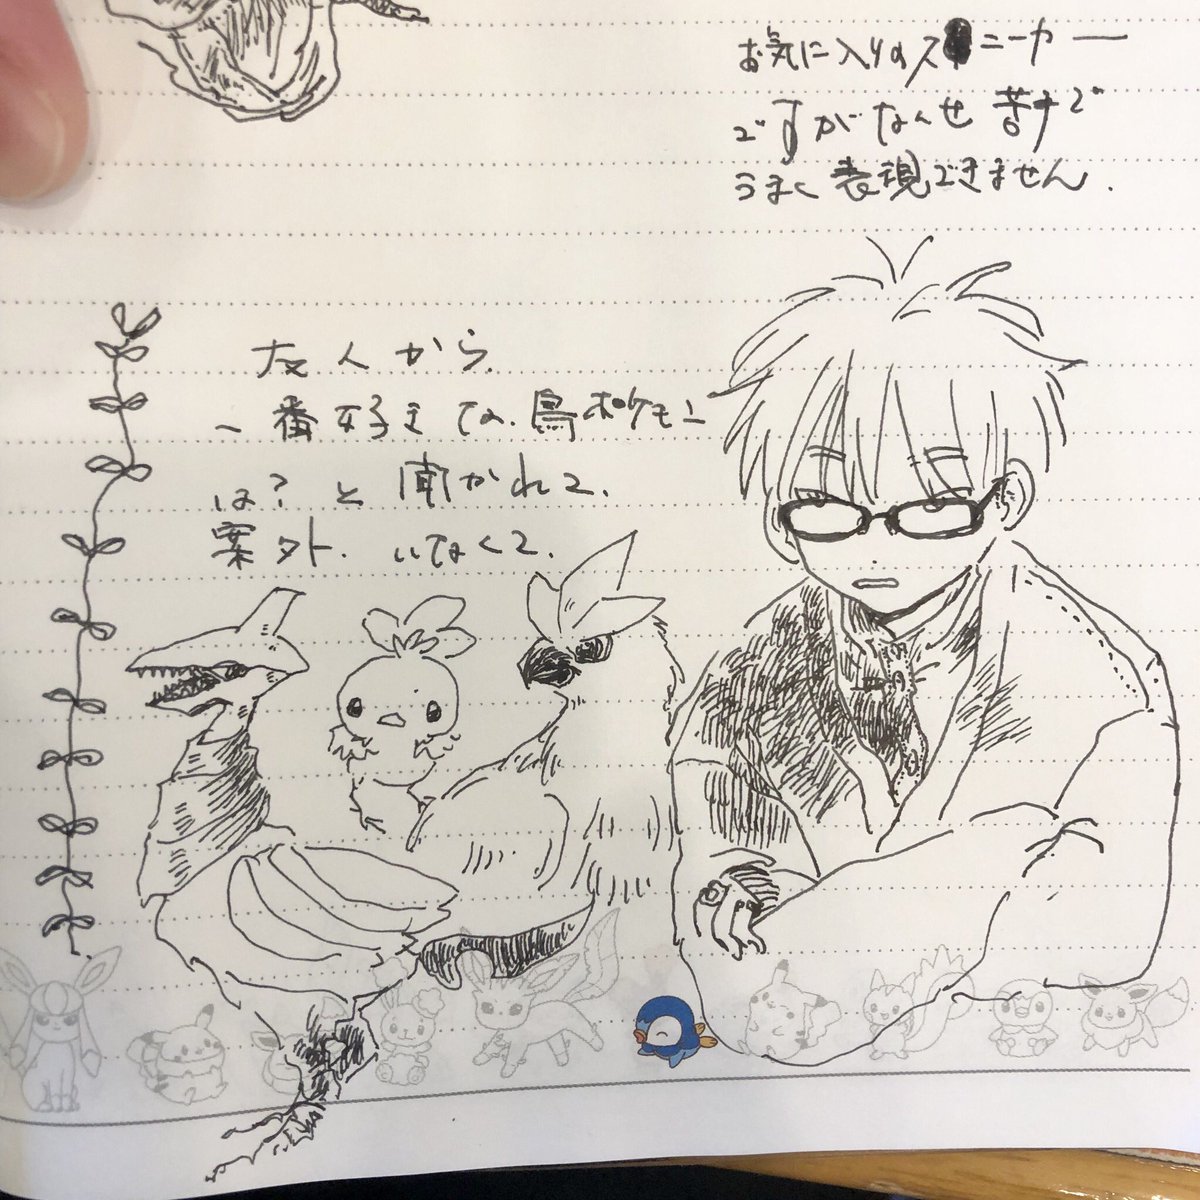 お気に入りのスニーカー
ですがなんせ苦手で
うまく表現できません.
友人から、
一番好きな、鳥ポケモン
は？と聞かれて、
案外、いなくて、